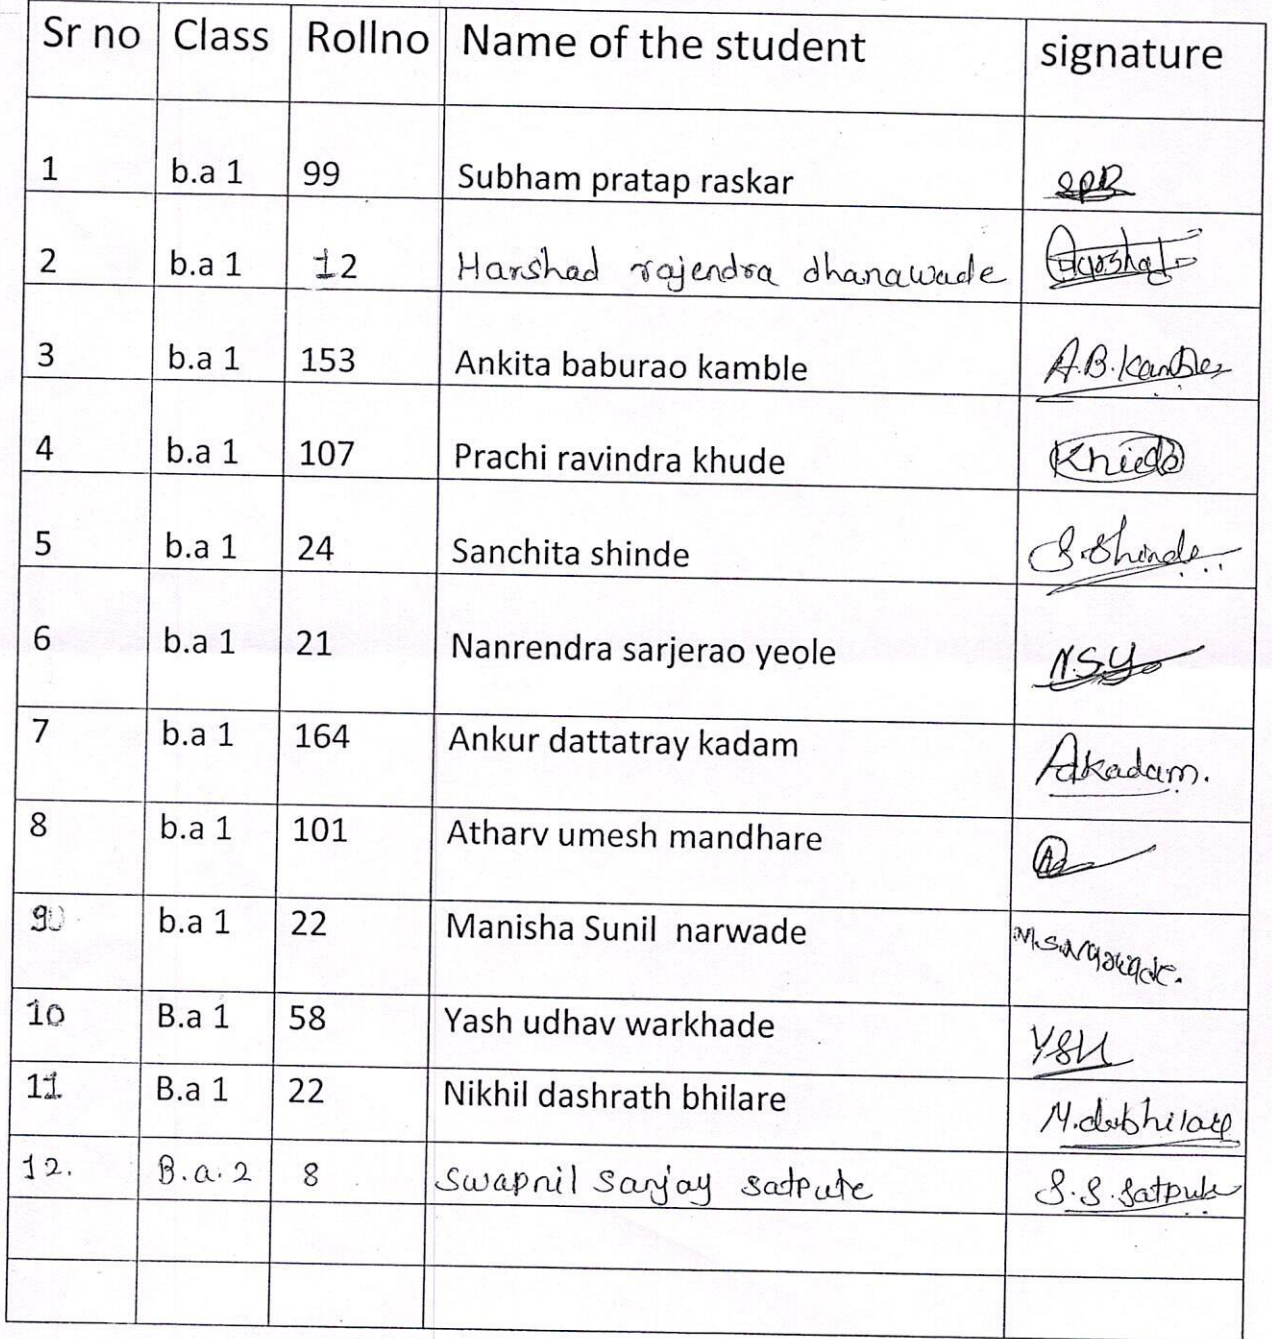 Sr no Class Rollno Name of the student signature
1 b.a 1 99 Subham pratap raskar SPR
2 b.a 1 12 Harshad rajendra dhanawade Harshad
3 b.a 1 153 Ankita baburao kamble A.B.Kamble
4 b.a 1 107 Prachi ravindra khude Khude
5 b.a 1 24 Sanchita shinde S.Shinde
6 b.a 1 21 Nanrendra sarjerao yeole N.S.Y.
7 b.a 1 164 Ankur dattatray kadam Adkadam.
8 b.a 1 101 Atharv umesh mandhare
9 b.a 1 22 Manisha Sunil narwade
10 B.a 1 58 Yash udhav warkhade
11 B.a 1 22 Nikhil dashrath bhilare
12. B.a.2 8 Swapnil Sanjay satpute S.S.Satpute